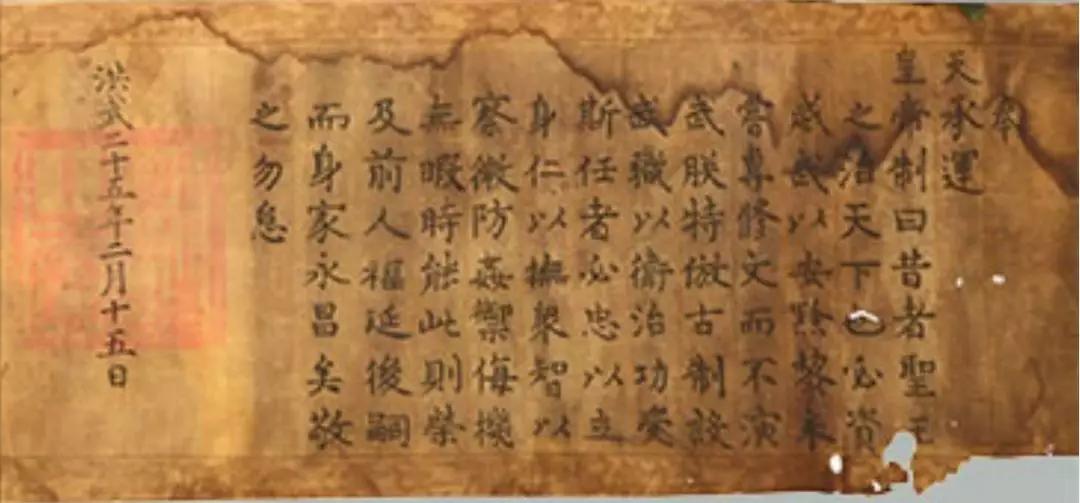 奉
天承運
皇帝制曰昔者聖王
之治天下也必資
威武以安黔黎未
嘗專修文而不演
武朕特倣古制設
武職以衛治功受
斯任者必忠以立
身仁以撫衆智以
察微防姦禦侮機
無暇時能此則榮
及前人福延後嗣
而身家永昌矣敬
之勿怠
洪武二十五年二月十五日